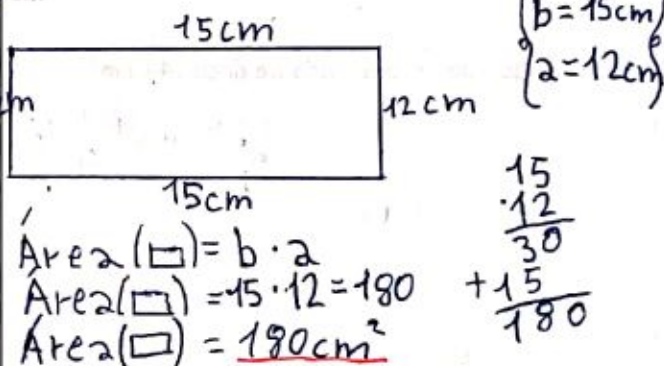 15cm
b=15cm
a=12cm
m
12cm
15cm
15
·12
30
+15
180
Área(▭)=b·a
Área(▭)=15·12=180
Área(▭)=180cm²